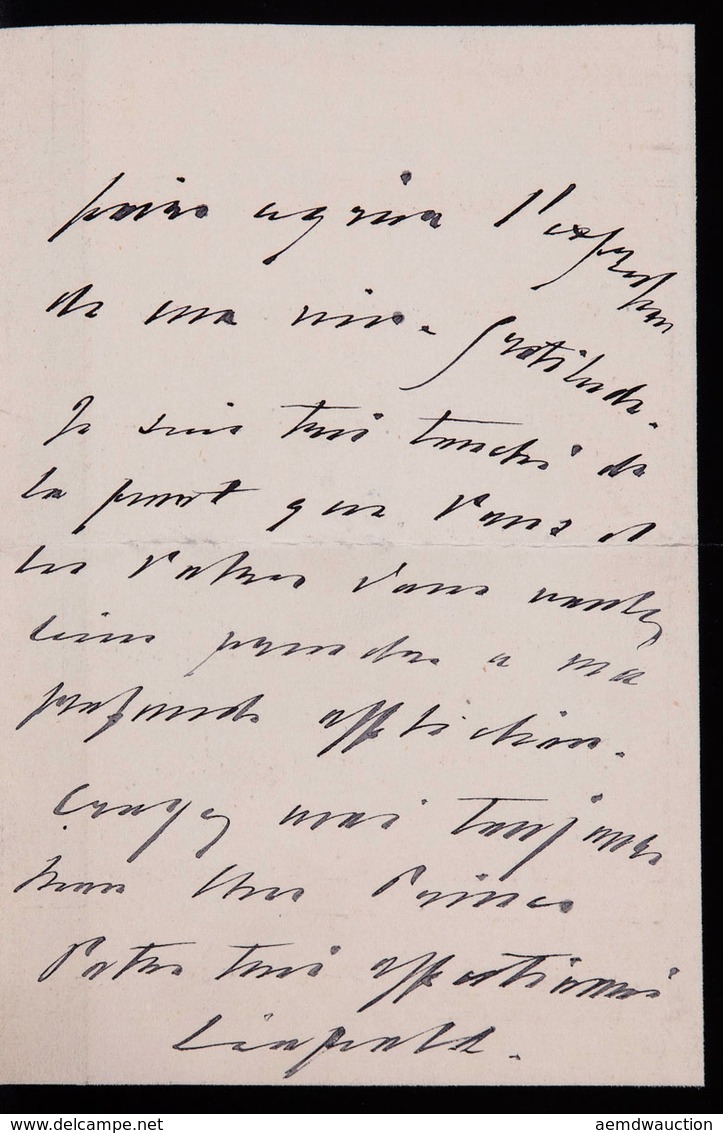 faire agréer l'expression
de ma vive gratitude.
Je suis très touché de
la part que Vous et
les Vôtres Vous voulez
bien prendre à ma
profonde affliction.
Croyez moi toujours
mon cher Prince
Votre très affectionné
Léopold.
www.delcampe.net
aemdwauction